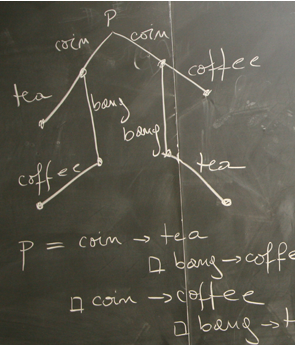 P
coin coin
tea bang coffee
bang
coffee tea
P = coin → tea
□ bang → coffe
□ coin → coffee
□ bang → t